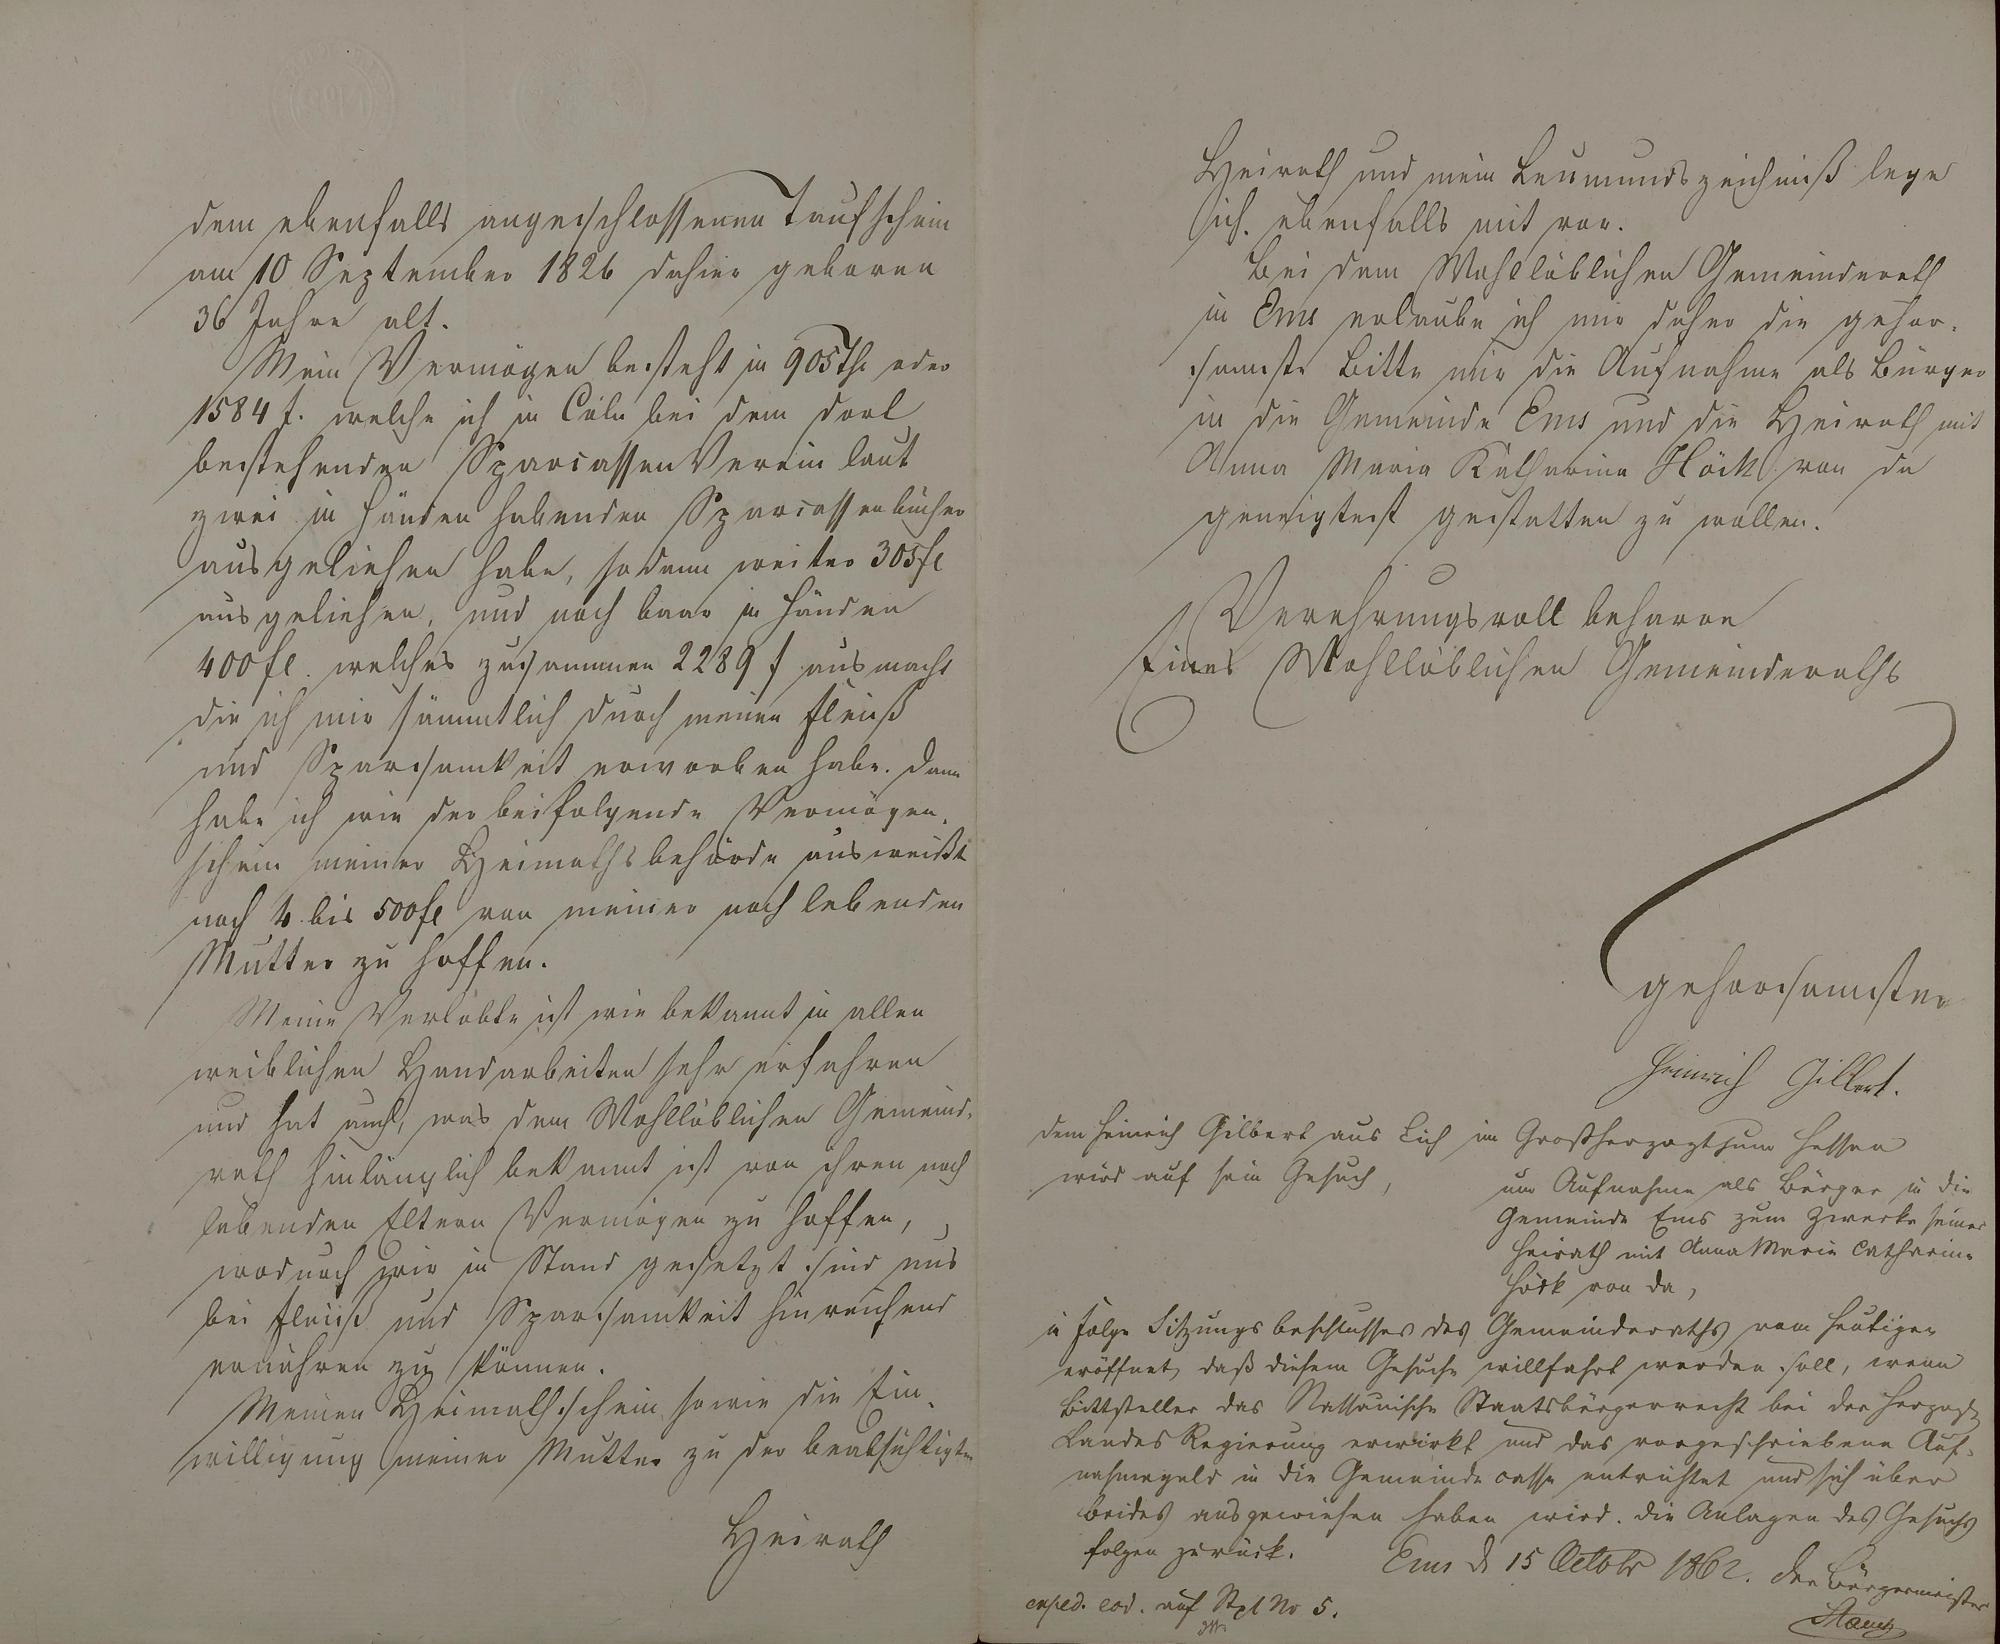 dem ebenfalls angeschlossenen Taufschein
am 10 September 1826 dahier geboren
36 Jahre alt.
Mein Vermögen besteht in 905 Thr oder
1584 f. welche ich in Cöln bei dem dort
bestehenden Sparcassen Verein laut
zwei in Händen habenden Sparcassenbücher
ausgeliehen habe, sodann weiter 305 fl
ausgeliehen, und noch baar in Händen
400 fl. welches zusammen 2289 f ausmacht
die ich mir sämmtlich durch meinen Fleiß
und Sparsamkeit erworben habe. Dann
habe ich wie der beifolgende Vermögen-
schein meiner Heimathsbehörde ausweißt
noch 4 bis 500 fl von meiner noch lebenden
Mutter zu hoffen.
Meine Verlobte ist wie bekannt in allen
weiblichen Handarbeiten sehr erfahren
und hat auch, was dem Wohllöblichen Gemeind-
rath hinlänglich bekannt ist von ihren noch
lebenden Eltern Vermögen zu hoffen,
wodurch wir in Stand gesetzt sind uns
bei Fleiß und Sparsamkeit hinreichend
ernähren zu können.
Meinen Heimathschein sowie die Ein-
willigung meiner Mutter zu der beabsichtigten
Heirath
Heirath und mein Leumundszeichniß lege
ich ebenfalls mit vor.
Bei dem Wohllöblichen Gemeinderath
in Ems erlaube ich mir daher die gehor-
samste Bitte mir die Aufnahme als Bürger
in die Gemeinde Ems und die Heirath mit
Anna Maria Katharina Höck von da
geneigtest gestatten zu wollen.
Verehrungsvoll beharre
Eines Wohllöblichen Gemeinderaths
gehorsamster
Heinrich Gilbert.
Dem Heinrich Gilbert aus Lich im Großherzogthum Hessen
wird auf sein Gesuch,
um Aufnahme als Bürger in die
Gemeinde Ems zum Zwecke seiner
Heirath mit Anna Maria Catharina
Höck von da,
in Folge Sitzungsbeschlusses des Gemeinderaths vom Heutigen
eröffnet, daß diesem Gesuche willfahrt werden soll, wenn
Bittsteller das Nassauische Staatsbürgerrecht bei der Herzogl
Landes Regierung erwirkt und das vorgeschriebene Auf-
nahmegeld in die Gemeindecasse entrichtet und sich über
beides ausgewiesen haben wird. Die Anlagen des Gesuchs
folgen zurück.
Ems d 15 Octobr 1862. Der Bürgermeister
exped. eod. auf Stpl No 5.